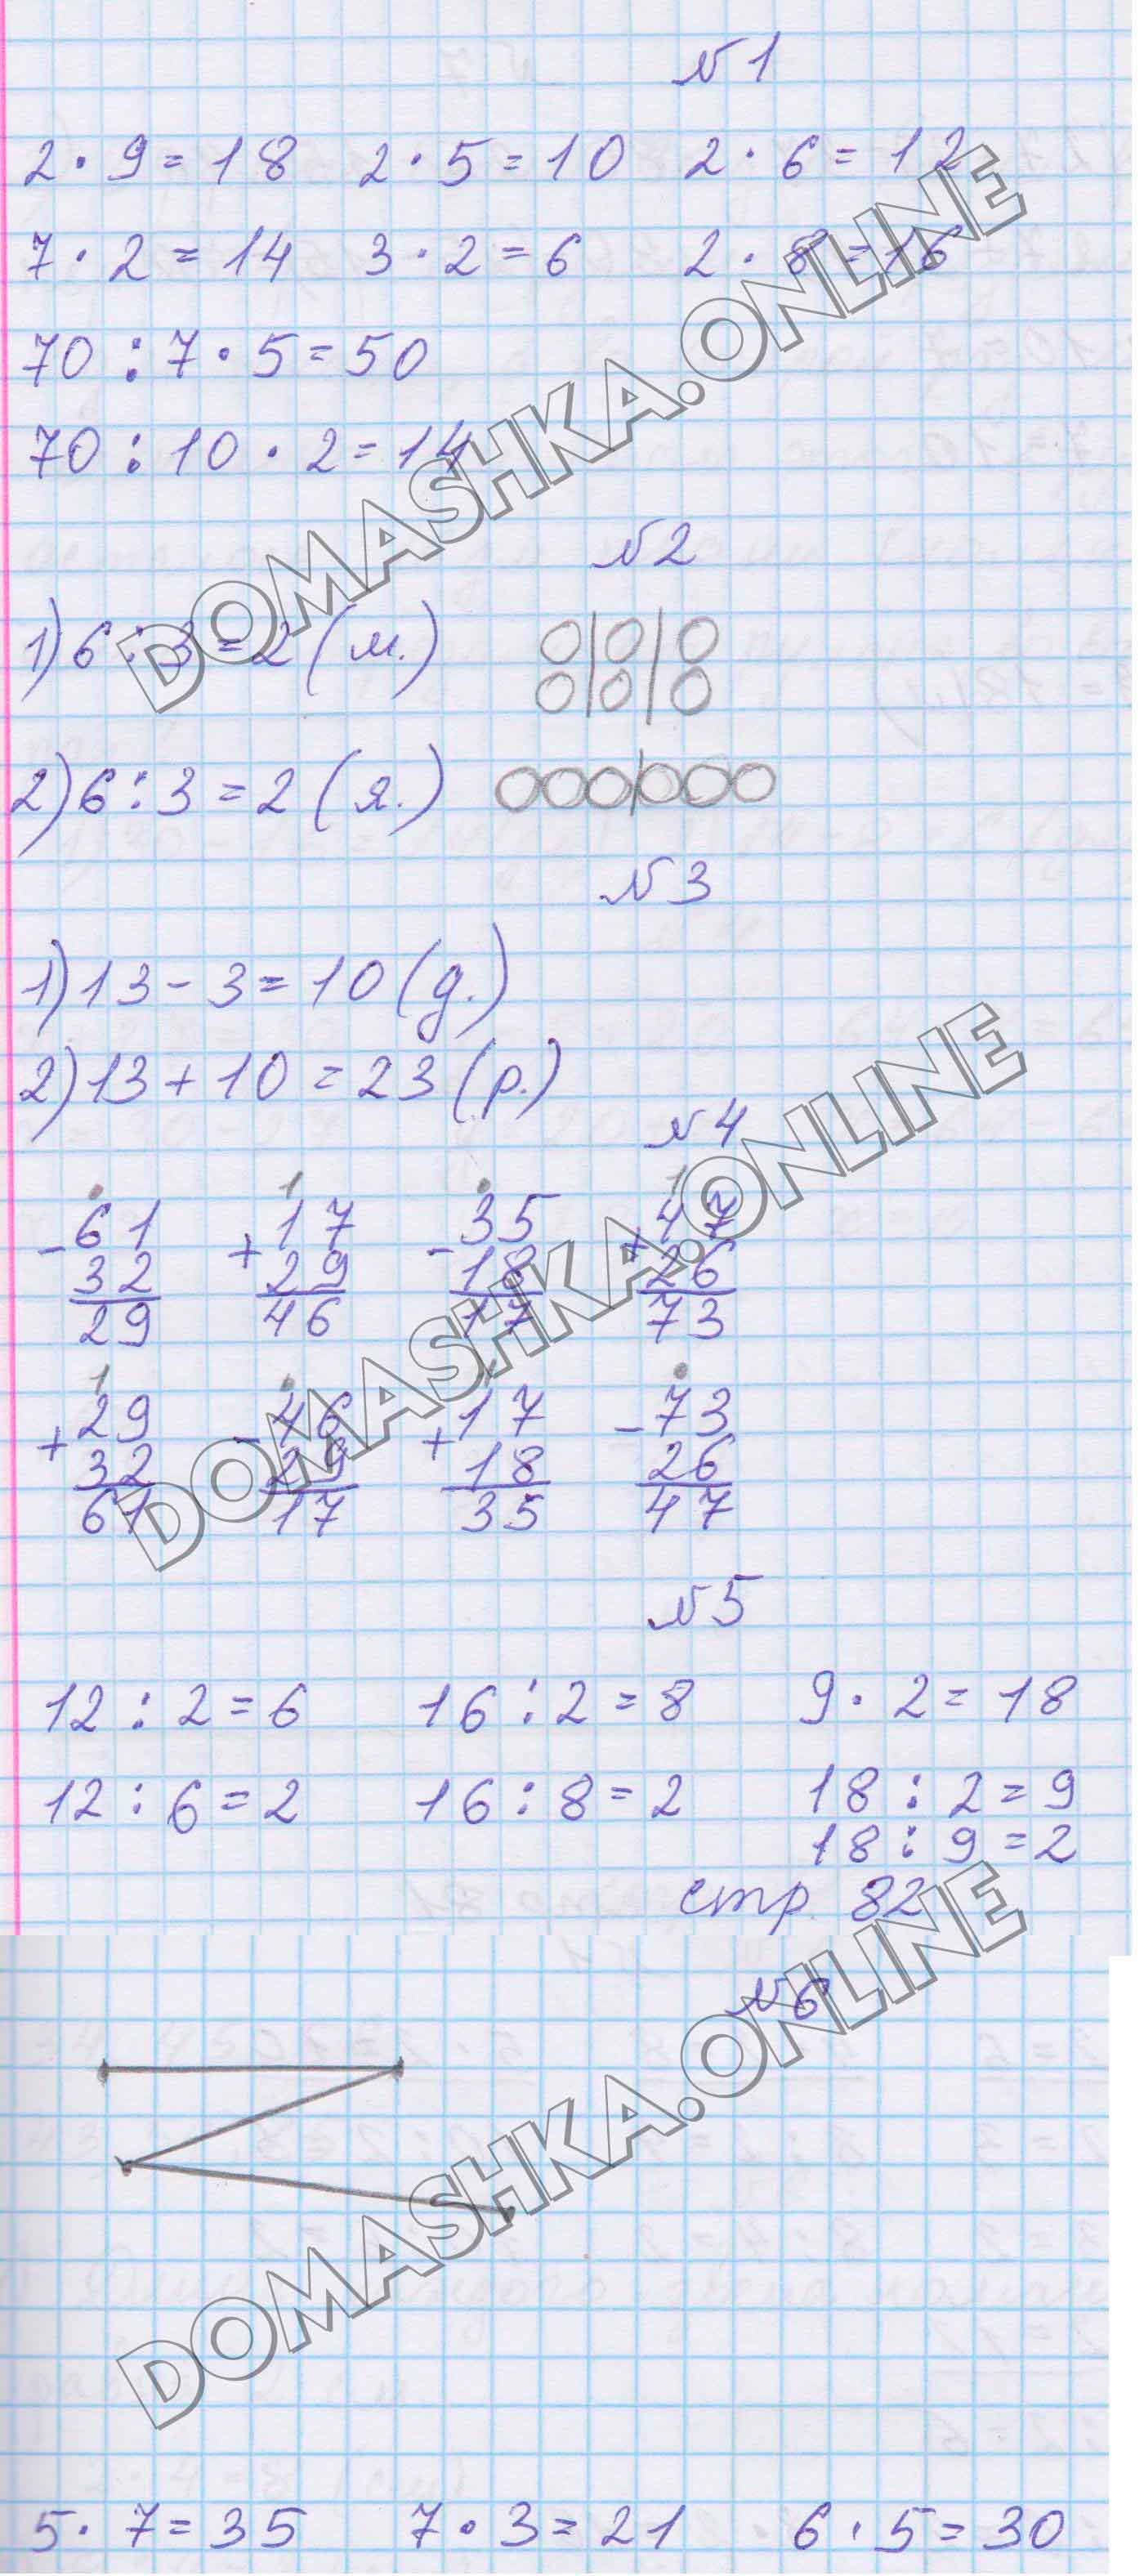 №1
2 · 9 = 18 2 · 5 = 10 2 · 6 = 12
7 · 2 = 14 3 · 2 = 6 2 · 8 = 16
70 : 7 · 5 = 50
70 : 10 · 2 = 14
DOMASHKA.ONLINE
№2
1) 6 : 3 = 2 (м.)
2) 6 : 3 = 2 (я.)
№3
1) 13 - 3 = 10 (д.)
2) 13 + 10 = 23 (р.)
№4
DOMASHKA.ONLINE
1 1
- 61 + 17 - 35 + 47
32 29 18 26
29 46 17 73
1 1
+ 29 - 46 + 17 - 73
32 29 18 26
61 17 35 47
№5
12 : 2 = 6 16 : 2 = 8 9 · 2 = 18
12 : 6 = 2 16 : 8 = 2 18 : 2 = 9
18 : 9 = 2
стр. 82
№6
DOMASHKA.ONLINE
5 · 7 = 35 7 · 3 = 21 6 · 5 = 30